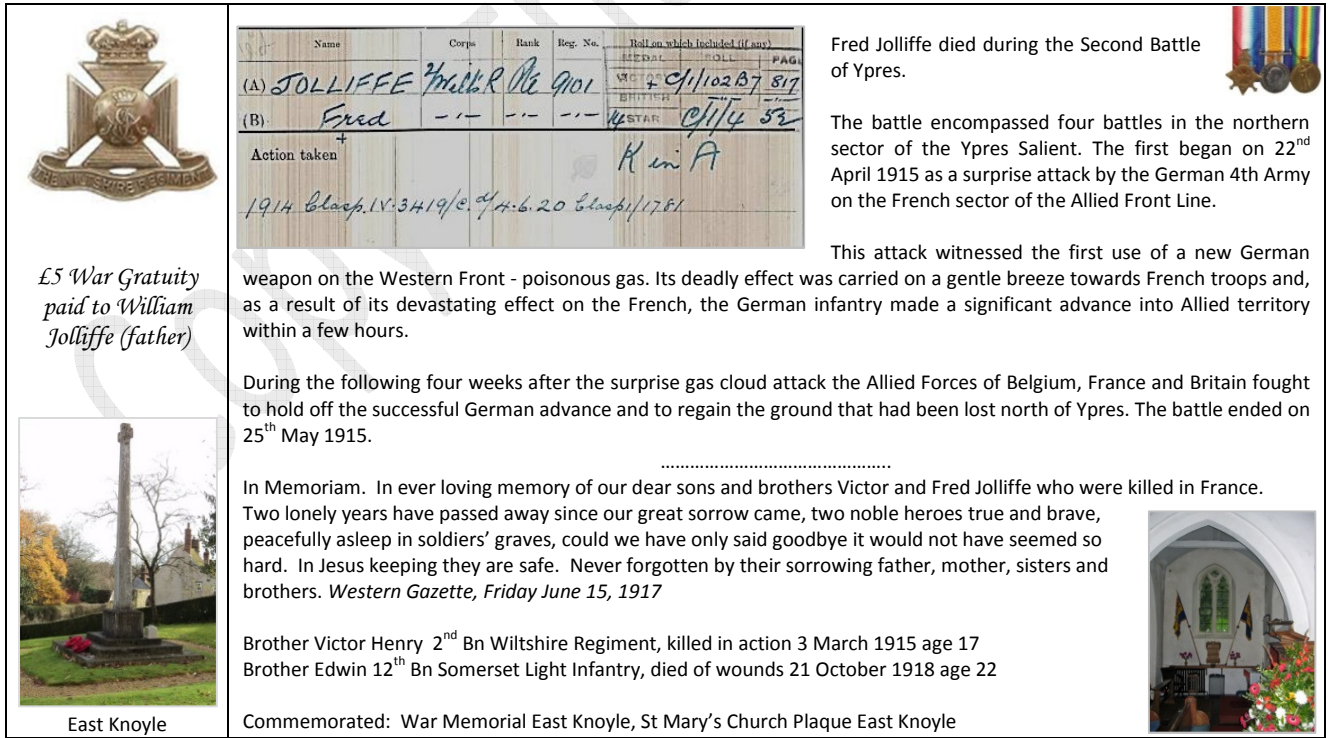 THE WILTSHIRE REGIMENT
£5 War Gratuity
paid to William
Jolliffe (father)
East Knoyle
Name Corps Rank Reg. No. Roll on which included (if any)
MEDAL ROLL PAGE
(A) JOLLIFFE 2/Wilts R Pte 9101 VICTORY + C/1/102B7 817
BRITISH -"- -"-
(B) Fred -"- -"- -"- 14 STAR C/1/4 52
Action taken K in A
1914 Clasp. IV. 3419/E. d/4.6.20 Clasp 1/1781
Fred Jolliffe died during the Second Battle
of Ypres.
The battle encompassed four battles in the northern
sector of the Ypres Salient. The first began on 22nd
April 1915 as a surprise attack by the German 4th Army
on the French sector of the Allied Front Line.
This attack witnessed the first use of a new German
weapon on the Western Front - poisonous gas. Its deadly effect was carried on a gentle breeze towards French troops and,
as a result of its devastating effect on the French, the German infantry made a significant advance into Allied territory
within a few hours.
During the following four weeks after the surprise gas cloud attack the Allied Forces of Belgium, France and Britain fought
to hold off the successful German advance and to regain the ground that had been lost north of Ypres. The battle ended on
25th May 1915.
…………………………………………..
In Memoriam. In ever loving memory of our dear sons and brothers Victor and Fred Jolliffe who were killed in France.
Two lonely years have passed away since our great sorrow came, two noble heroes true and brave,
peacefully asleep in soldiers’ graves, could we have only said goodbye it would not have seemed so
hard. In Jesus keeping they are safe. Never forgotten by their sorrowing father, mother, sisters and
brothers. Western Gazette, Friday June 15, 1917
Brother Victor Henry 2nd Bn Wiltshire Regiment, killed in action 3 March 1915 age 17
Brother Edwin 12th Bn Somerset Light Infantry, died of wounds 21 October 1918 age 22
Commemorated: War Memorial East Knoyle, St Mary’s Church Plaque East Knoyle